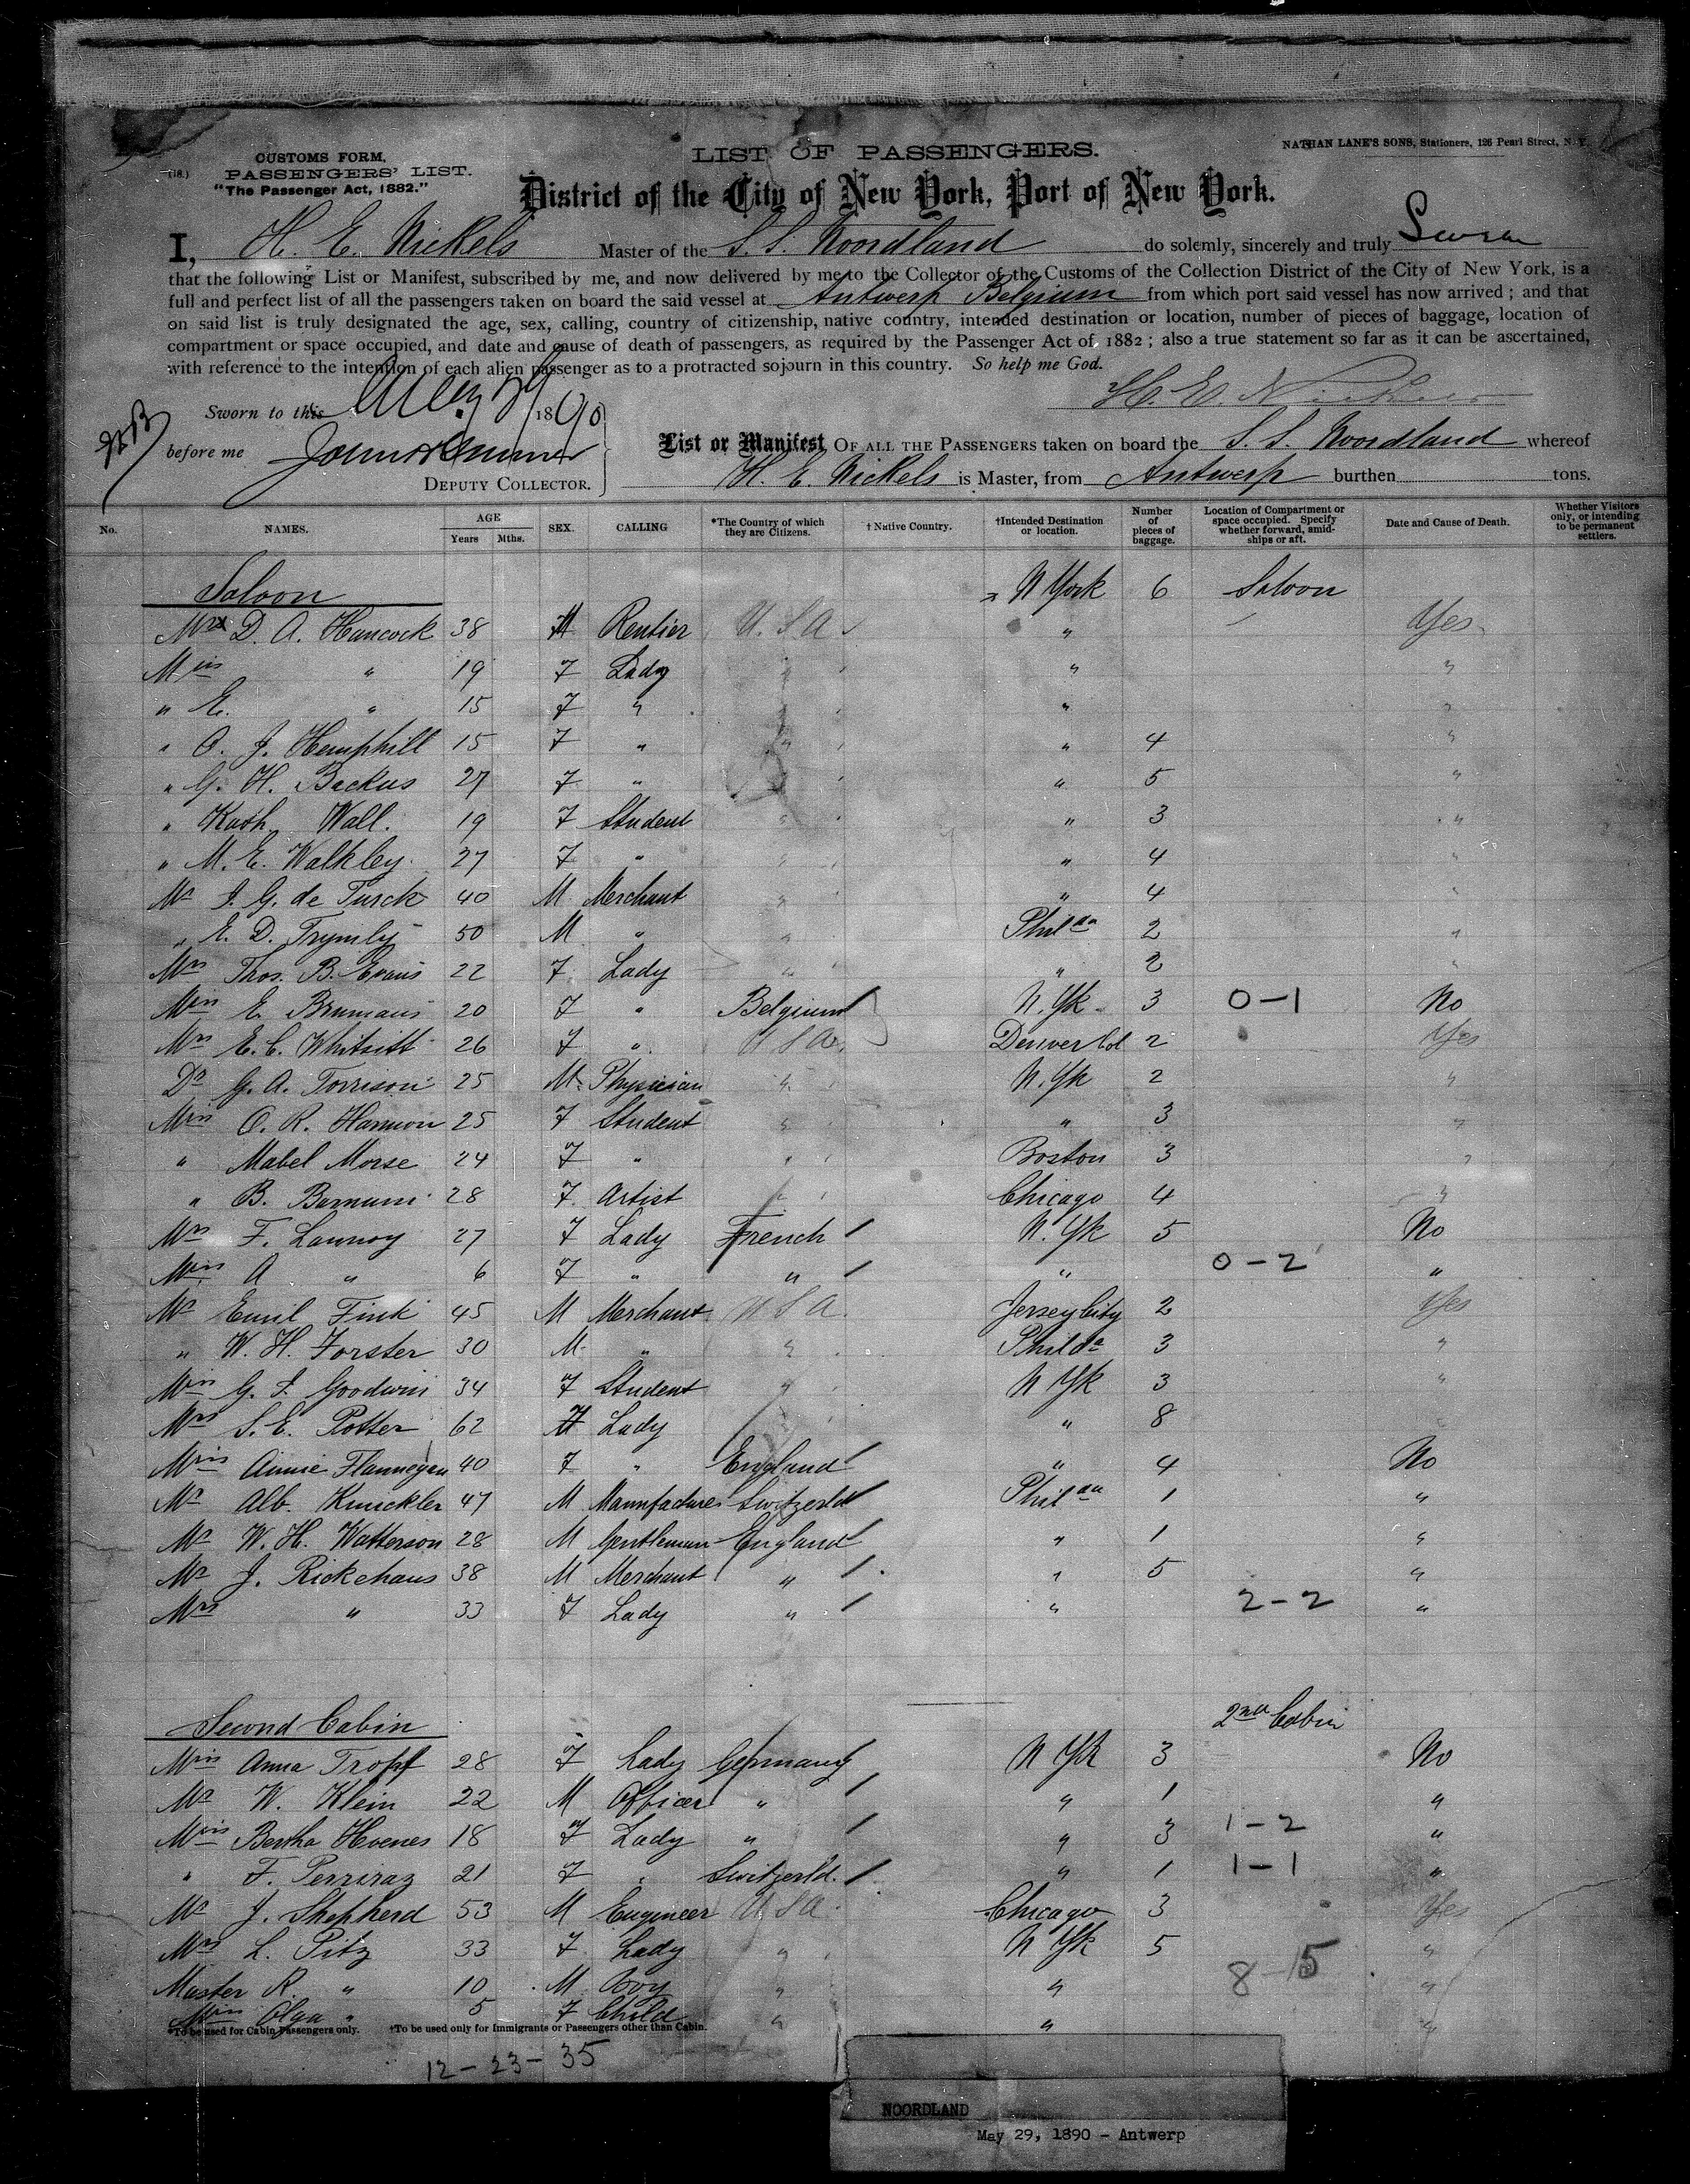 (18.)
CUSTOMS FORM.
PASSENGERS' LIST.
"The Passenger Act, 1882."
LIST OF PASSENGERS.
NATHAN LANE'S SONS, Stationers, 126 Pearl Street, N. Y.
District of the City of New York, Port of New York.
I, H. E. Nickels Master of the S. S. Noordland do solemly, sincerely and truly Swear
that the following List or Manifest, subscribed by me, and now delivered by me to the Collector of the Customs of the Collection District of the City of New York, is a
full and perfect list of all the passengers taken on board the said vessel at Antwerp Belgium from which port said vessel has now arrived ; and that
on said list is truly designated the age, sex, calling, country of citizenship, native country, intended destination or location, number of pieces of baggage, location of
compartment or space occupied, and date and cause of death of passengers, as required by the Passenger Act of 1882 ; also a true statement so far as it can be ascertained,
with reference to the intention of each alien passenger as to a protracted sojourn in this country. So help me God.
H. E. Nickels
Sworn to this May 29 1890
before me
DEPUTY COLLECTOR.
List or Manifest OF ALL THE PASSENGERS taken on board the S. S. Noordland whereof
H. E. Nickels is Master, from Antwerp burthen tons.
No. NAMES. AGE Years Mths. SEX. CALLING *The Country of which they are Citizens. † Native Country. †Intended Destination or location. Number of pieces of baggage. Location of Compartment or space occupied. Specify whether forward, amidships or aft. Date and Cause of Death. Whether Visitors only, or intending to be permanent settlers.
Saloon N York 6 Saloon
D. A. Hancock 38 M Rentier U. S A " Yes
Miss " 19 F Lady " " "
" E. " 15 F " " " "
" O. J. Hemphill 15 F " " " 4 "
" G. H. Backus 27 F " " " 5 "
" Kath. Wall. 19 F Student " " 3 "
" M. E. Walkley. 27 F " " " 4 "
Mr J. G. de Turck 40 M Merchant " " 4 "
" E. D. 50 M " " Phila 2 "
Mrs Thos. B. Evans 22 F Lady " " 2 "
Miss E. 20 F " Belgium N. Yk 3 0-1 No
Mrs E. C. Whitsitt 26 F " U S A Denver Col 2 Yes
Dr G. A. Torrison 25 M Physician " N. Yk 2 "
Miss O. R. Harmon 25 F Student " " 3 "
" Mabel Morse 24 F " " Boston 3 "
" B. Barnum 28 F Artist " Chicago 4 "
Mrs F. Launoy 27 F Lady French N. Yk 5 No
Miss A " 6 F " " " 0-2 "
Mr Emil Fink 45 M Merchant U S A Jersey City 2 Yes
" W. H. Forster 30 M " " Phila 3 "
Miss G. I. Goodwin 34 F Student " N Yk 3 "
Mrs S. E. Potter 62 F Lady " 8
Miss Annie Flannegan 40 F " England " 4 No
Mr Alb. Knuckler 47 M Manufacturer Switzerld Phila 1 "
Mr W. H. Watterson 28 M Gentleman England " 1 "
Mr J. Rickehaus 38 M Merchant " " 5 "
Mrs " 33 F Lady " " 2-2 "
Second Cabin 2nd Cabin
Miss Anna Tropf 28 F Lady Germany N Yk 3 No
Mr W. Klein 22 M Officer " " 1 "
Miss Bertha Hoenes 18 F Lady " " 3 1-2 "
" F. Perriraz 21 F " Switzerld. " 1 1-1 "
Mr J. Shepherd 53 M Engineer U S A Chicago 3 Yes
Mrs L. Pitz 33 F Lady " N Yk 5 "
Master R. " 10 M Boy " " 8-15 "
Miss Olga " 5 F Child " " "
*To be used for Cabin Passengers only. †To be used only for Immigrants or Passengers other than Cabin.
12-23-35
NOORDLAND
May 29, 1890 - Antwerp